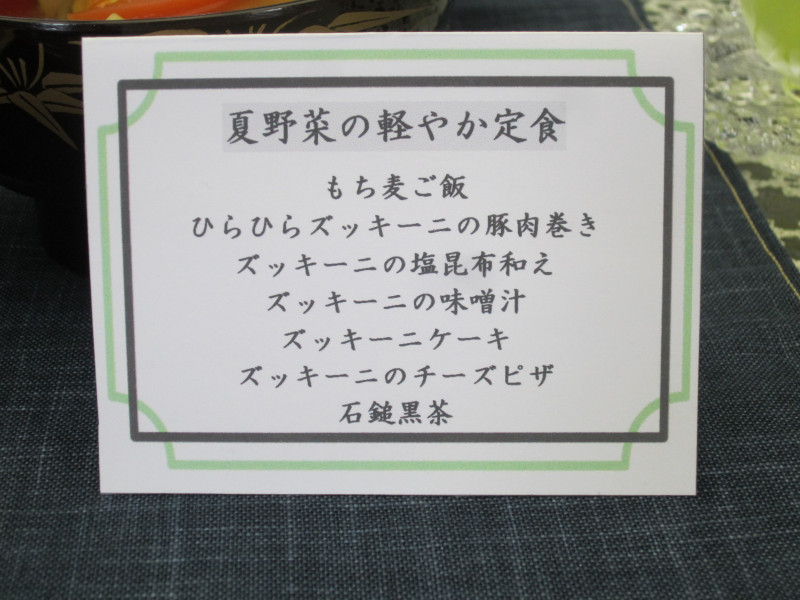 夏野菜の軽やか定食
もち麦ご飯
ひらひらズッキーニの豚肉巻き
ズッキーニの塩昆布和え
ズッキーニの味噌汁
ズッキーニケーキ
ズッキーニのチーズピザ
石鎚黒茶